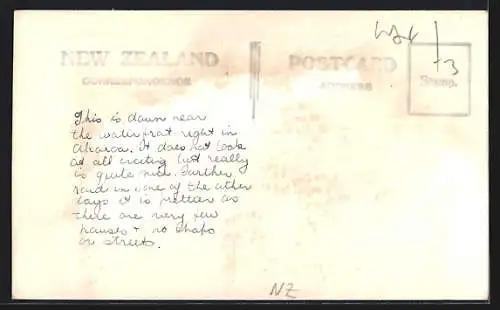 NEW ZEALAND
CORRESPONDENCE
POSTCARD
ADDRESS
Stamp.
3
This is down near
the waterfront right in
Akaroa. It does not look
at all exciting but really
is quite nice. Further
round in one of the other
bays it is prettier as
there are very few
houses + no shops
or streets.
NZ